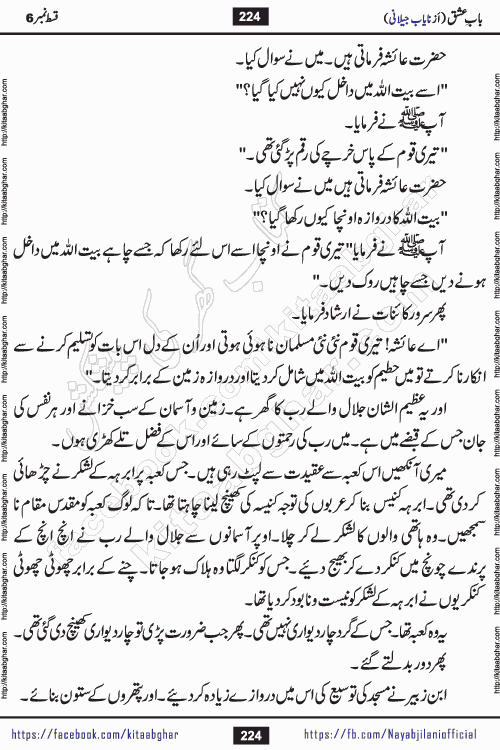 باب عشق (از نایاب جیلانی)
224
قسط نمبر 6
حضرت عائشہ فرماتی ہیں۔ میں نے سوال کیا۔
"اسے بیت اللہ میں داخل کیوں نہیں کیا گیا؟"
آپ ﷺ نے فرمایا۔
"تیری قوم کے پاس خرچے کی رقم پڑ گئی تھی۔"
حضرت عائشہ فرماتی ہیں میں نے سوال کیا۔
"بیت اللہ کا دروازہ اونچا کیوں رکھا گیا؟"
آپ ﷺ نے فرمایا" تیری قوم نے اونچا اسے اس لئے رکھا کہ جسے چاہے بیت اللہ میں داخل
ہونے دیں جسے چاہیں روک دیں۔"
پھر سرور کائنات نے ارشاد فرمایا۔
"اے عائشہ! تیری قوم نئی نئی مسلمان نا ہوئی ہوتی اور اُن کے دل اس بات کو تسلیم کرنے سے
انکار نا کرتے تو میں حطیم کو بیت اللہ میں شامل کر دیتا اور دروازہ زمین کے برابر کر دیتا۔"
اور یہ عظیم الشان جلال والے رب کا گھر ہے۔ زمین و آسمان کے سب خزانے اور ہر نفس کی
جان جس کے قبضے میں ہے۔ میں رب کی رحمتوں کے سائے اور اس کے فضل تلے کھڑی ہوں۔
میری آنکھیں اس کعبہ سے عقیدت سے لپٹ رہی ہیں۔ جس کعبہ پر ابرہہ کے لشکر نے چڑھائی
کر دی تھی۔ ابرہہ کنیس بنا کر عربوں کی توجہ کنیسہ کی کھینچ لینا چاہتا تھا۔ تاکہ لوگ کعبہ کو مقدس مقام نا
سمجھیں۔ وہ ہاتھی والوں کا لشکر لے کر چلا۔ اوپر آسمانوں سے جلال والے رب نے انچ انچ کے
پرندے چونچ میں کنکر دے کر بھیج دیئے۔ جس کو کنکر لگتا وہ ہلاک ہو جاتا۔ چنے کے برابر چھوٹی چھوٹی
کنکریوں نے ابرہہ کے لشکر کو نیست و نابود کر دیا تھا۔
یہ وہ کعبہ تھا۔ جس کے گرد چار دیواری نہیں تھی۔ پھر جب ضرورت پڑی تو چار دیواری کھینچ دی گئی تھی۔
پھر دور بدلتے گئے۔
ابن زبیر نے مسجد کی توسیع کی اس میں دروازے زیادہ کر دیئے۔ اور پتھروں کے ستون بنائے۔
https://facebook.com/kitaabghar
224
https://fb.com/Nayabjilaniofficial
http://kitaabghar.com
http://kitaabghar.com
http://kitaabghar.com
http://kitaabghar.com
http://kitaabghar.com
http://kitaabghar.com
http://kitaabghar.com
http://kitaabghar.com